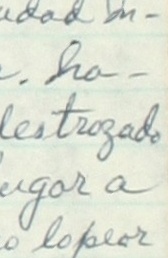 udad in-
. ha-
destrozado
lugar a
lopeor